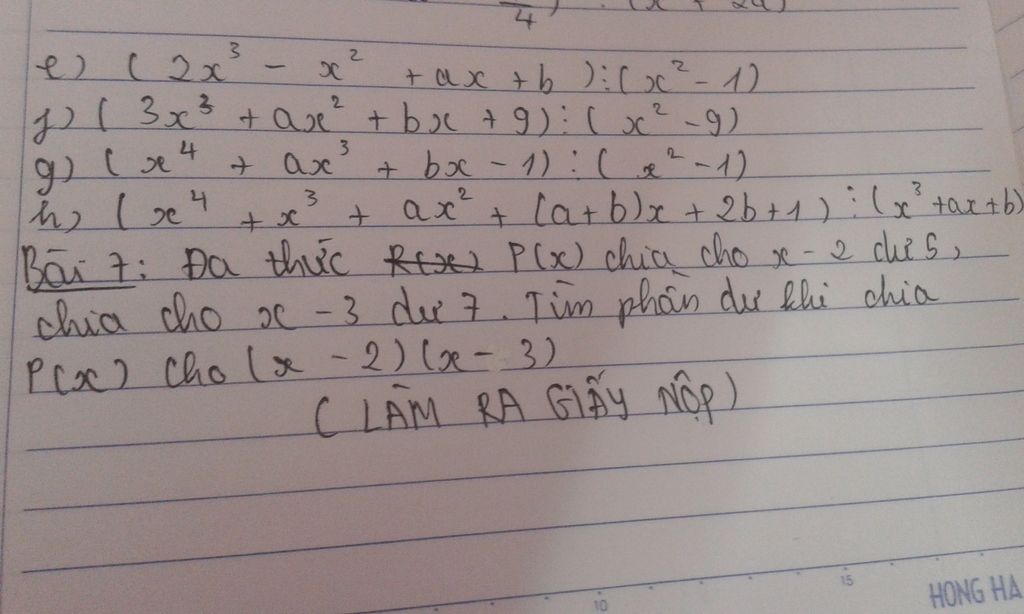 4 (x + 2a)
e) (2x³ - x² + ax + b) : (x² - 1)
f) (3x³ + ax² + bx + 9) : (x² - 9)
g) (x⁴ + ax³ + bx - 1) : (x² - 1)
h) (x⁴ + x³ + ax² + (a+b)x + 2b + 1) : (x³ + ax + b)
Bài 7: Đa thức R(x) P(x) chia cho x - 2 dư 5,
chia cho x - 3 dư 7. Tìm phần dư khi chia
P(x) cho (x - 2)(x - 3)
(LÀM RA GIẤY NỘP)
10 15 HONG HA